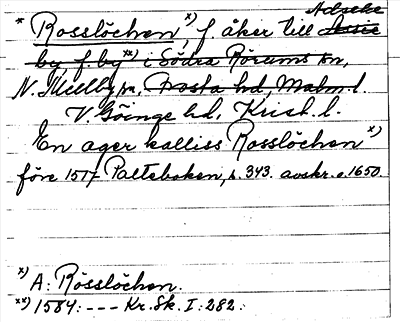 Adseke
* Rosslöchen,*) f. åker till
by f. by **) i Södra Rörums sn,
N. Mellby sn, Frosta hd, Malm. l.
V. Göinge hd, Krist. l.
En ager kalliss Rosslöchen *)
före 1517 Palteboken, s. 343. avskr. c. 1650.
*) A: Rösslöchen.
**) 1584: --- Kr. Sk. I: 282.